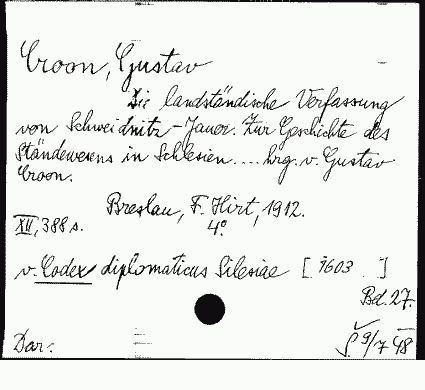 Croon, Gustav
Die landständische Verfassung
von Schweidnitz-Jauer. Zur Geschichte des
Ständewesens in Schlesien.... hrg. v. Gustav
Croon.
Breslau, F. Hirt, 1912.
XII, 388 s. 4°
v. Codex diplomaticus Silesiae [ 9603 ]
Bd. 27.
Dar: 9/7 48